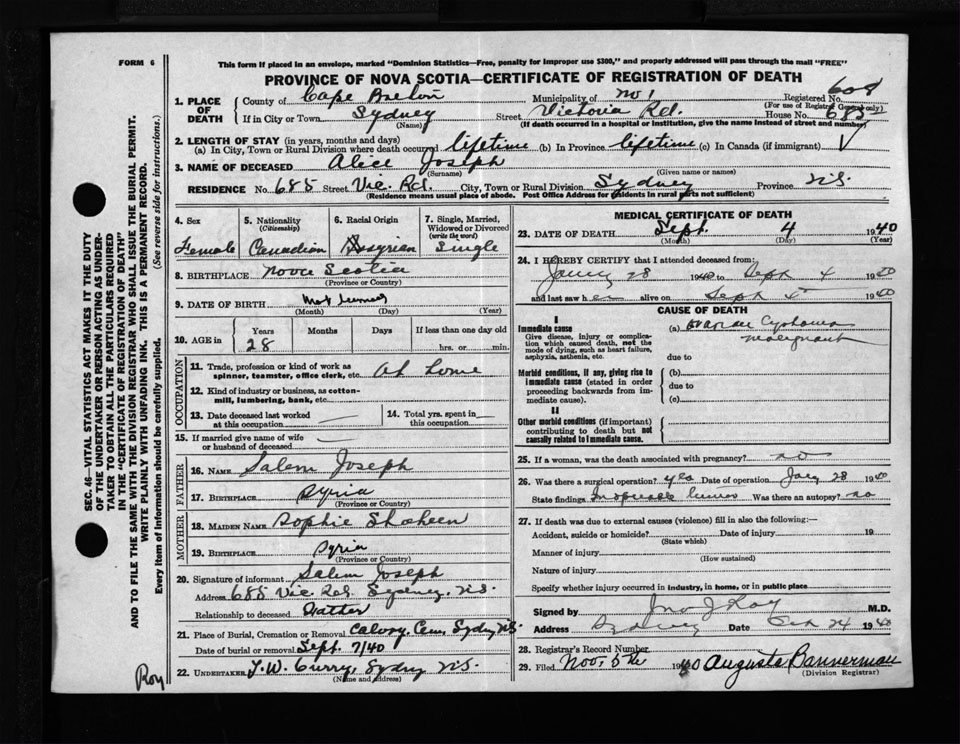 FORM 6
This form if placed in an envelope, marked "Dominion Statistics—Free, penalty for improper use $300," and properly addressed will pass through the mail "FREE"
PROVINCE OF NOVA SCOTIA—CERTIFICATE OF REGISTRATION OF DEATH
1. PLACE OF DEATH
County of Cape Breton Municipality of No 1 Registered No. 608
(For use of Registrar General only)
If in City or Town Sydney Street Victoria Rd. House No. 685
(Name) (If death occurred in a hospital or institution, give the name instead of street and number)
2. LENGTH OF STAY (in years, months and days)
(a) In City, Town or Rural Division where death occurred lifetime (b) In Province lifetime (c) In Canada (if immigrant)
3. NAME OF DECEASED Alice Joseph
(Surname) (Given name or names)
RESIDENCE No. 685 Street Vic. Rd. City, Town or Rural Division Sydney Province N.S.
(Residence means usual place of abode. Post Office Address for residents in rural parts not sufficient)
4. Sex
Female
5. Nationality
(Citizenship)
Canadian
6. Racial Origin
Syrian
7. Single, Married, Widowed or Divorced
(write the word)
Single
8. BIRTHPLACE Nova Scotia
(Province or Country)
9. DATE OF BIRTH Not
(Month) (Day) (Year)
10. AGE in
Years Months Days If less than one day old
28 hrs. or min.
OCCUPATION
11. Trade, profession or kind of work as spinner, teamster, office clerk, etc. At home
12. Kind of industry or business, as cotton-mill, lumbering, bank, etc.
13. Date deceased last worked at this occupation
14. Total yrs. spent in this occupation
15. If married give name of wife or husband of deceased
FATHER
16. NAME Salem Joseph
17. BIRTHPLACE Syria
(Province or Country)
MOTHER
18. MAIDEN NAME Sophie Shaheen
19. BIRTHPLACE Syria
(Province or Country)
20. Signature of informant Salem Joseph
Address 685 Vic Rd. Sydney, N.S.
Relationship to deceased Father
21. Place of Burial, Cremation or Removal Calvory Cem, Sydney N.S.
Date of burial or removal Sept. 7/40
22. UNDERTAKER T.W. Curry, Sydney N.S.
(Name and address)
MEDICAL CERTIFICATE OF DEATH
23. DATE OF DEATH Sept. 4 1940
(Month) (Day) (Year)
24. I HEREBY CERTIFY that I attended deceased from:
28 1940 to Sept 4 1940
and last saw her alive on Sept 4 1940
CAUSE OF DEATH
I
Immediate cause
Give disease, injury or complication which caused death, not the mode of dying, such as heart failure, asphyxia, asthenia, etc.
(a) Ovarian
malignant
due to
Morbid conditions, if any, giving rise to immediate cause (stated in order proceeding backwards from immediate cause).
(b)
due to
(c)
II
Other morbid conditions (if important) contributing to death but not causally related to immediate cause.
25. If a woman, was the death associated with pregnancy? no
26. Was there a surgical operation? yes Date of operation Jany 28 1940
State findings Was there an autopsy? no
27. If death was due to external causes (violence) fill in also the following:—
Accident, suicide or homicide? Date of injury 19
(State which)
Manner of injury
(How sustained)
Nature of injury
Specify whether injury occurred in industry, in home, or in public place
Signed by Jno J Roy M.D.
Address Sydney Date 24 1940
28. Registrar's Record Number
29. Filed Nov. 5th 1940 Augusta Bannerman
(Division Registrar)
SEC. 46—VITAL STATISTICS ACT MAKES IT THE DUTY
OF THE UNDERTAKER OR PERSON ACTING AS UNDER-
TAKER TO OBTAIN ALL THE PARTICULARS REQUIRED
IN THE "CERTIFICATE OF REGISTRATION OF DEATH"
AND TO FILE THE SAME WITH THE DIVISION REGISTRAR WHO SHALL ISSUE THE BURIAL PERMIT.
WRITE PLAINLY WITH UNFADING INK. THIS IS A PERMANENT RECORD.
Every item of Information should be carefully supplied. (See reverse side for instructions.)
Roy